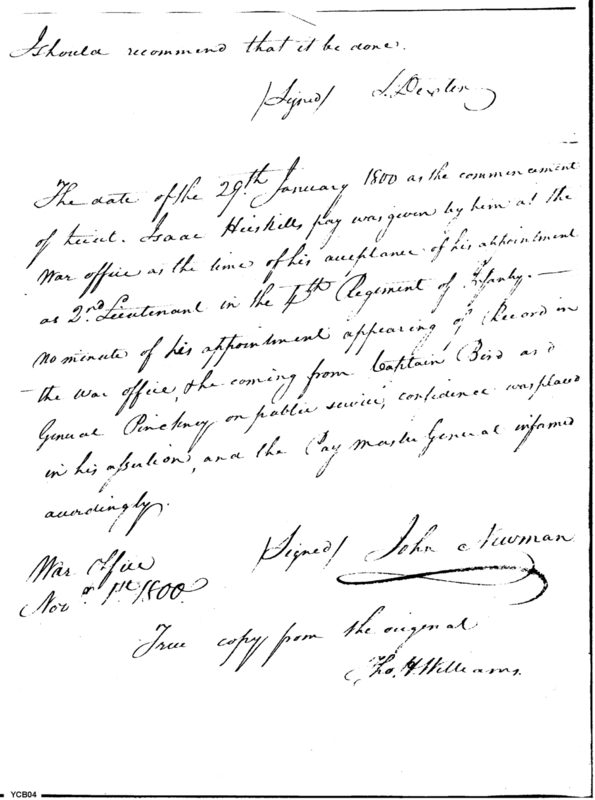 I should recommend that it be done.
/Signed/ S. Dexter
The date of the 29th January 1800 as the commencement
of Lieut. Isaac Huskills pay was given by him at the
War office as the time of his acceptance of his appointment
as 2nd Lieutenant in the 4th Regiment of Infantry. —
no minute of his appointment appearing of Record in
— the War office, & he coming from Captain Bird and
General Pinckney on public service, confidence was placed
in his assertion, and the Pay Master General informed
accordingly.
/Signed/ John Newman
War Office
Novr 1st 1800
True copy from the original
Tho. H. Williams.
YCB04